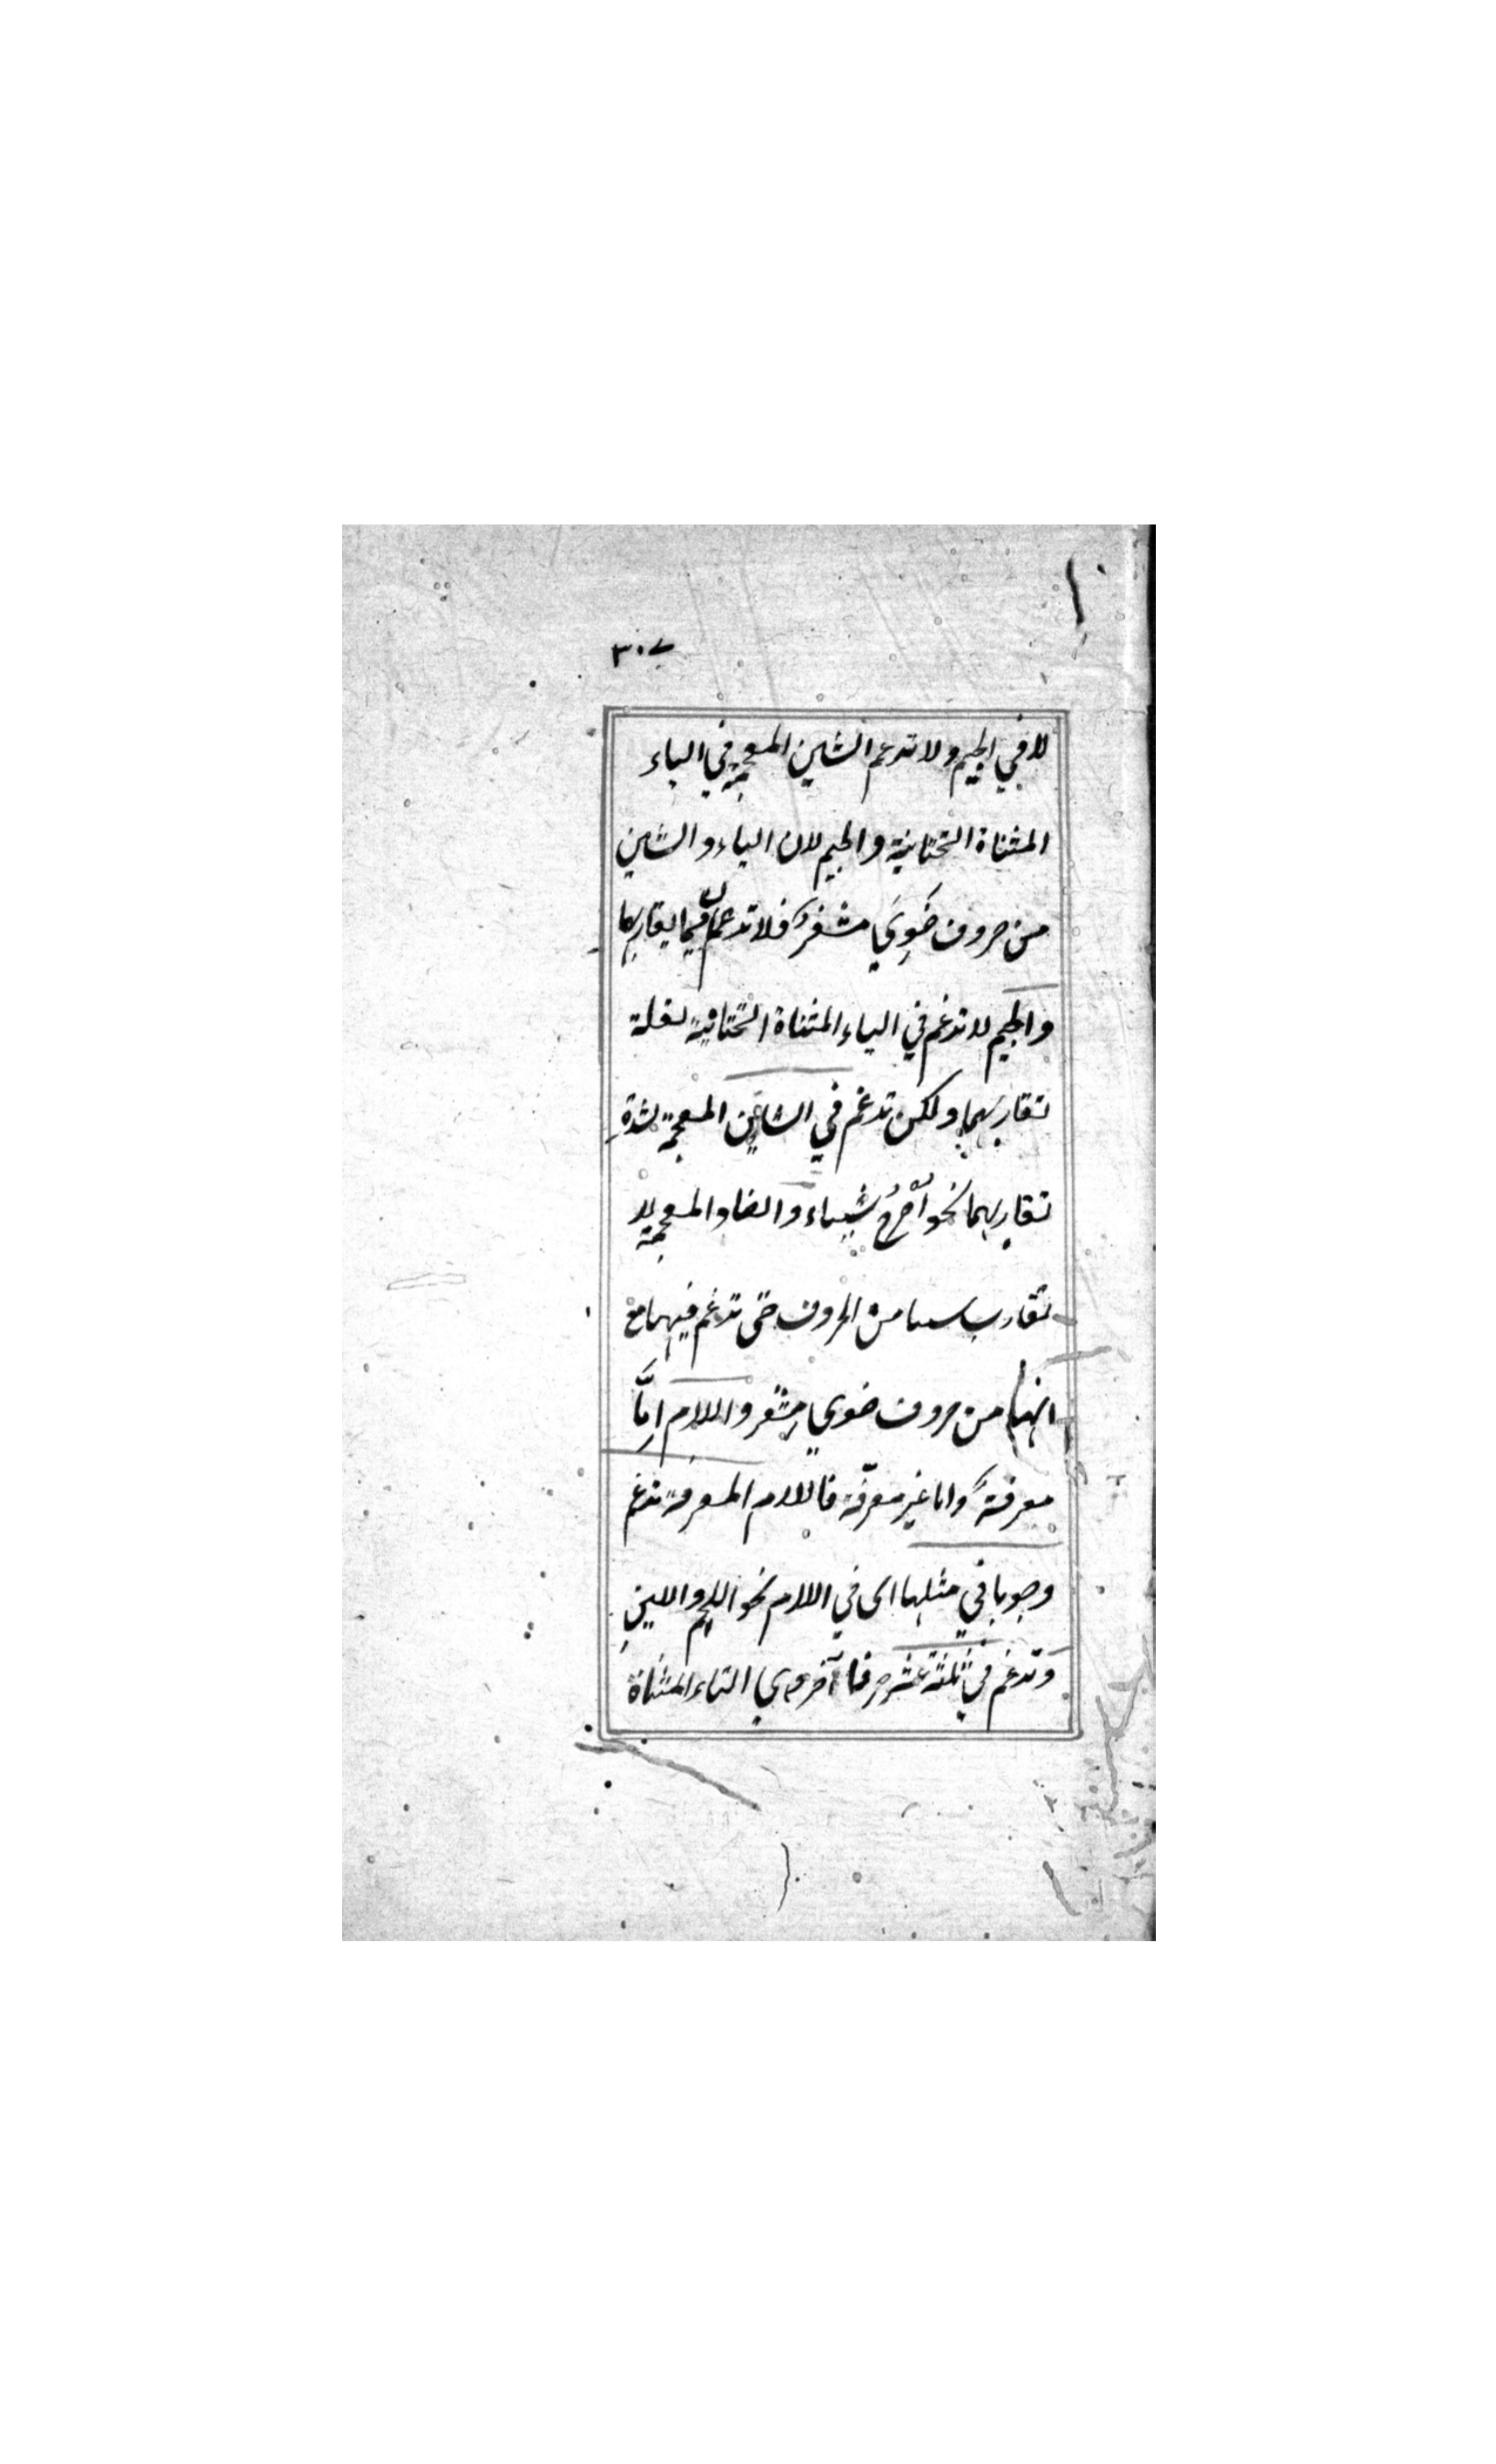 ٣٠٧
لا في الجيم ولا تدغم الشين المعجمة في الياء
المثناة التحتانية والجيم لان الياء والشين
من حروف ضَوِيَ مشفرٌ فلا تدغمان فيما يقاربها
والجيم لا تدغم في الياء المثناة التحتانية لقلة
تقاربهما ولكن تدغم في الشين المعجمة لشدةِ
تقاربهما نحو اَخرجْ شيماء والضاد المعجمة لا
تقارب من الحروف حتى تدغم فيها مع
انها من حروف ضوي مشفر واللام اِمَّا
معرفةٌ واما غير معرّفة فاللام المعرفة تدغم
وجوبا في مثلها اى في اللام نحو اللحم واللين
وَتدغم في ثلثة عشر حرفا آخر وهي التاء المثناة